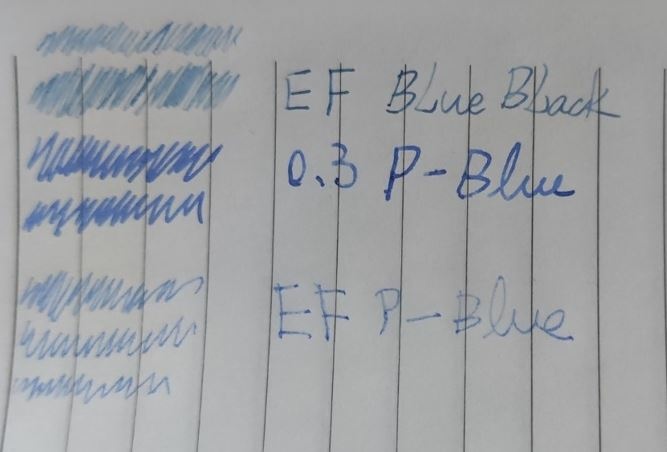 EF Blue Black
0.3 P-Blue
EF P-Blue